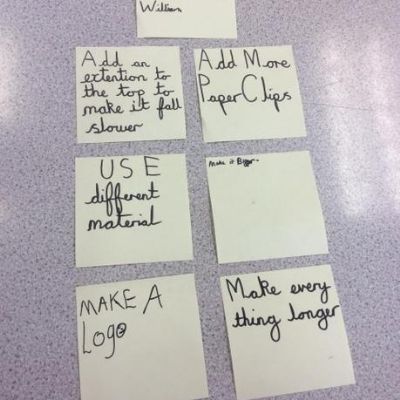 William
Add an
extention to
the top to
make it fall
slower
Add More
PaperClips
USE
different
material
Make it Bigger.
MAKE A
Logo
Make every
thing longer